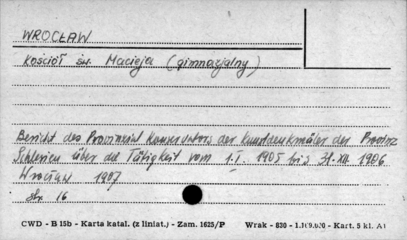 WROCŁAW
Kościół św. Macieja (gimnazjalny)
Bericht des Provinzial Konservators der Kunstdenkmäler der Provinz
Schlesien über die Tätigkeit vom 1.I. 1905 bis 31.XII 1906
Wrocław 1907
str. 16
CWD - B 15b - Karta katal. (z liniat.) - Zam. 1625/P Wrak - 830 - Kart. 5 kl. A1